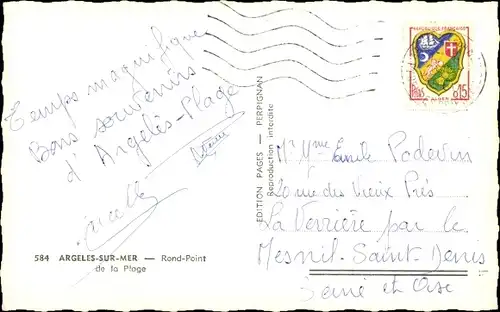 Temps magnifique
Bons souvenirs
d'Argelès-Plage
584 ARGELES-SUR-MER — Rond-Point
de la Plage
EDITION PAGES — PERPIGNAN
Reproduction interdite
REPUBLIQUE FRANÇAISE
POSTES 0,15
ALGER
Mr Mme Emile Podevin
20 rue des Vieux Prés
La Verrière par le
Mesnil-Saint-Denis
Seine et Oise